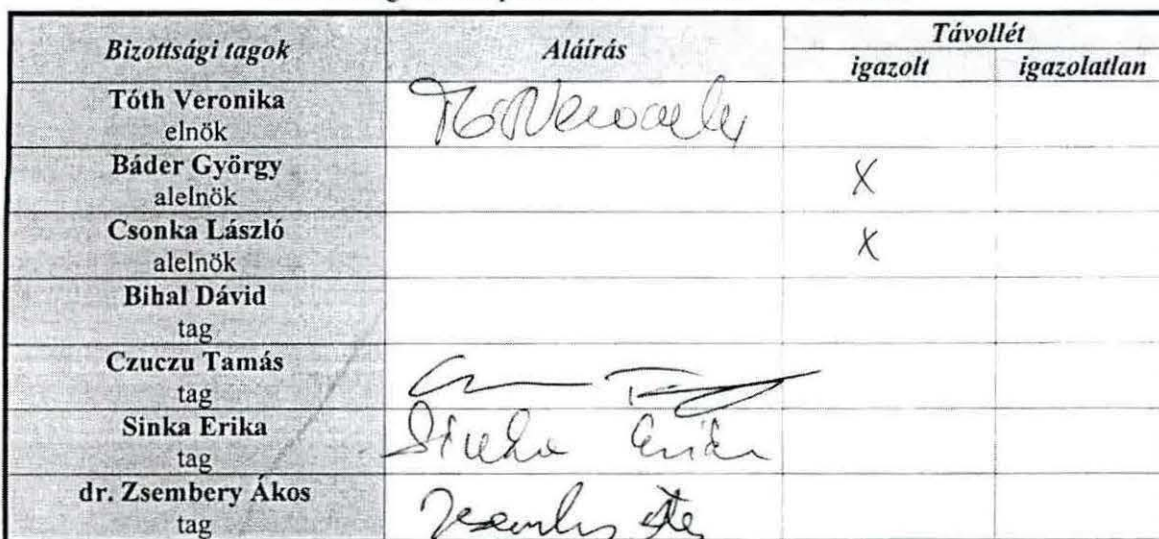 Bizottsági tagok Aláírás Távollét
igazolt igazolatlan
Tóth Veronika
elnök
Báder György
alelnök X
Csonka László
alelnök X
Bihal Dávid
tag
Czuczu Tamás
tag
Sinka Erika Sinka Erika
tag
dr. Zsembery Ákos
tag